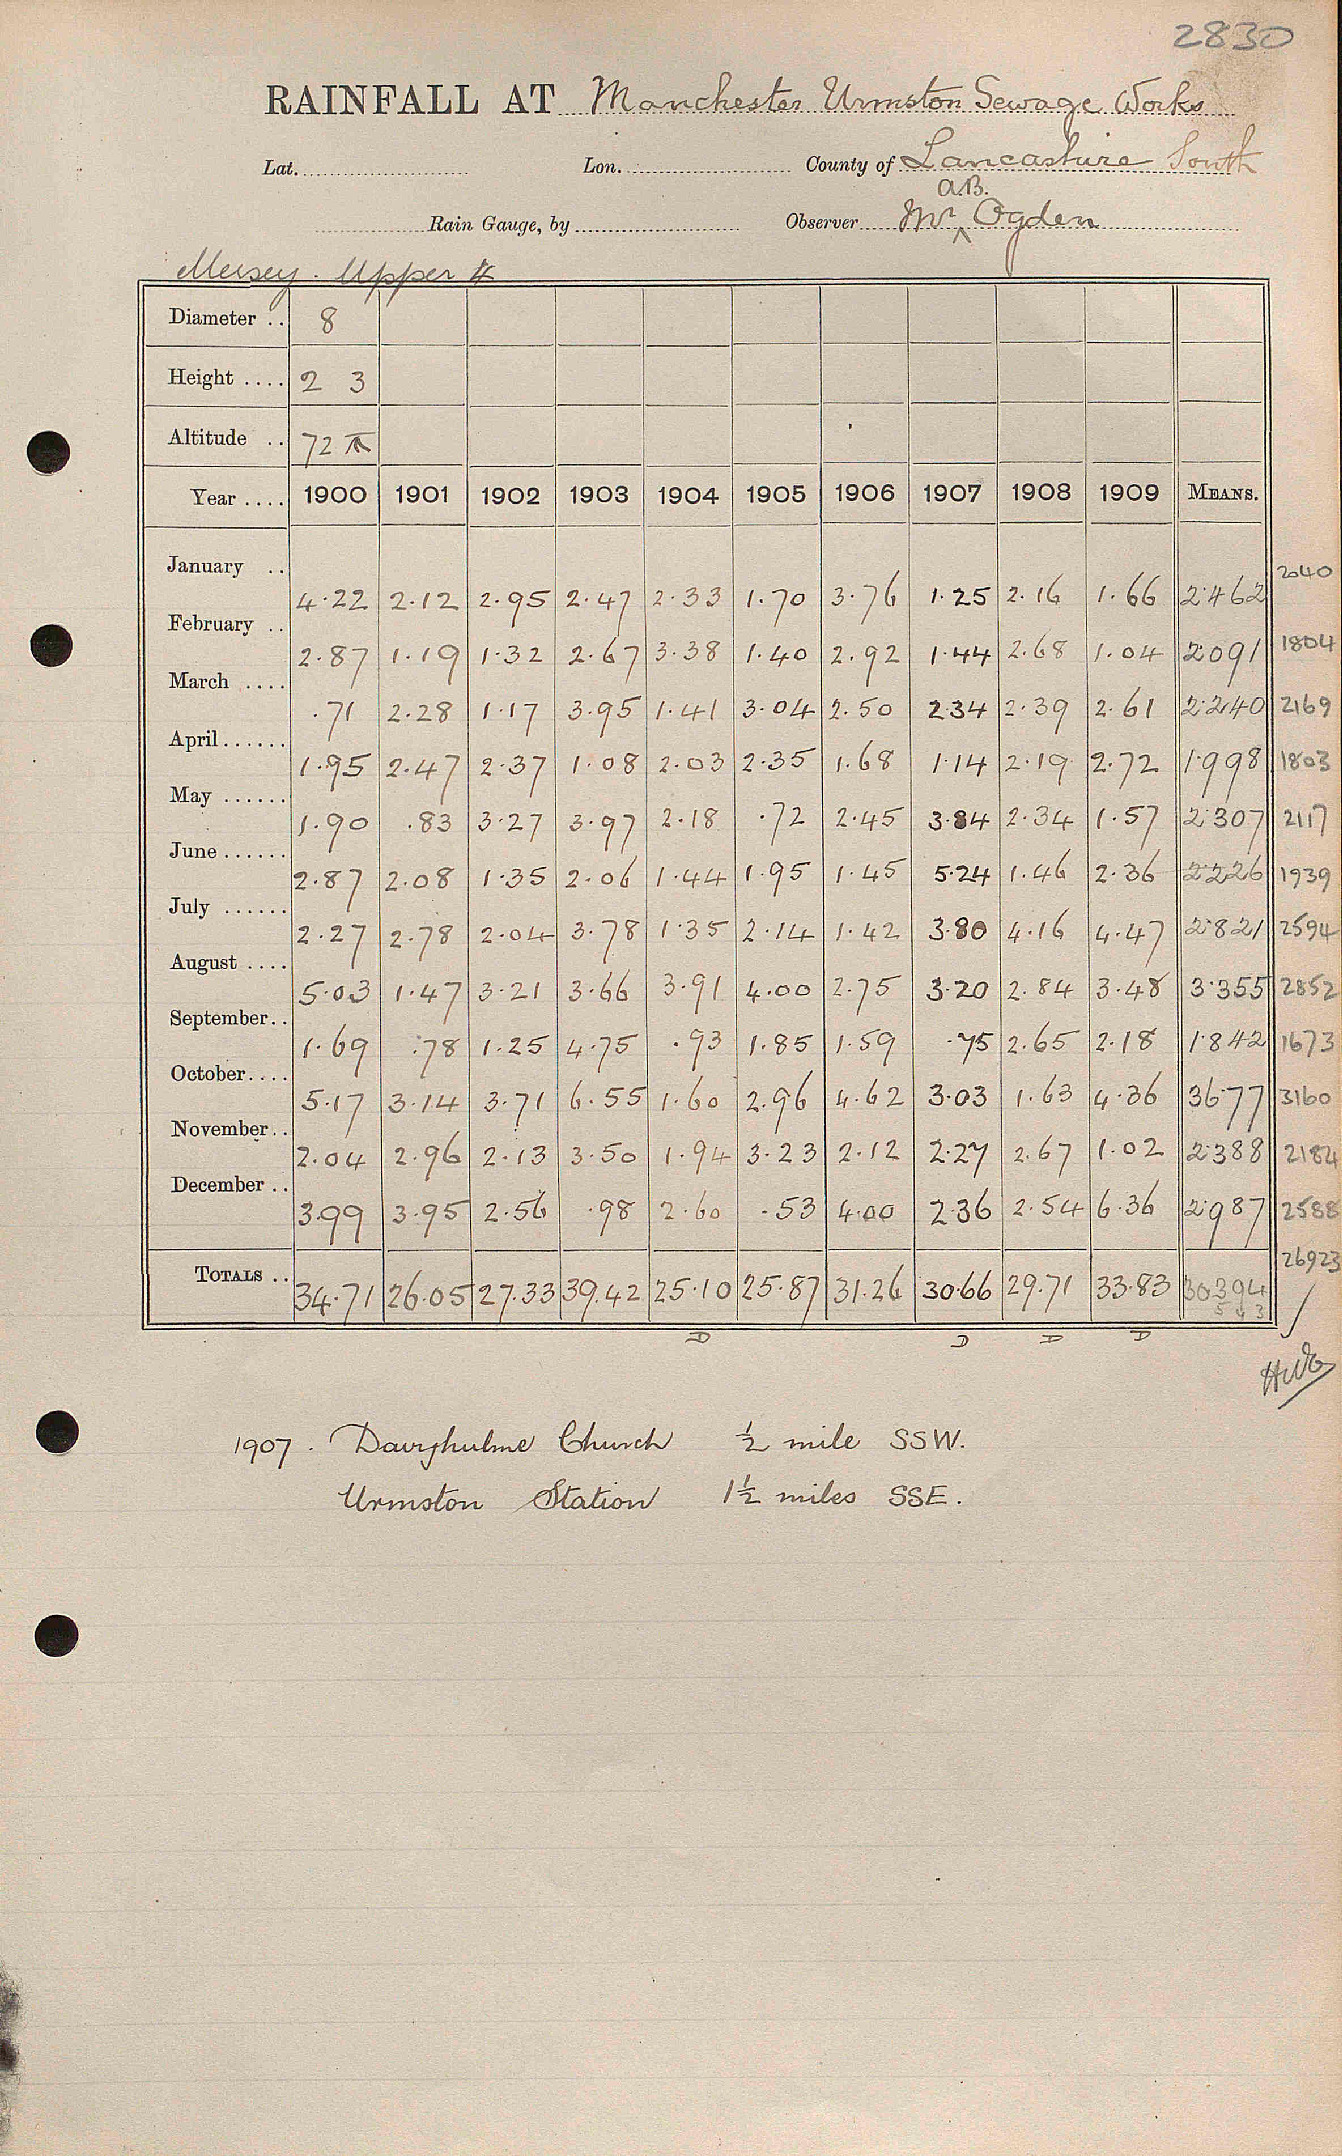 2830
RAINFALL AT Manchester Urmston Sewage Works
Lat. Lon. County of Lancashire South
A.B.
Rain Gauge, by Observer Mr ^ Ogden
Mersey. Upper 4
Diameter .. 8
Height .... 2 3
Altitude .. 72
Year .... 1900 1901 1902 1903 1904 1905 1906 1907 1908 1909 MEANS.
January .. 4.22 2.12 2.95 2.47 2.33 1.70 3.76 1.25 2.16 1.66 2.462 2040
February .. 2.87 1.19 1.32 2.67 3.38 1.40 2.92 1.44 2.68 1.04 2091 1804
March .... .71 2.28 1.17 3.95 1.41 3.04 2.50 2.34 2.39 2.61 2.240 2169
April...... 1.95 2.47 2.37 1.08 2.03 2.35 1.68 1.14 2.19 2.72 1.998 1803
May ...... 1.90 .83 3.27 3.97 2.18 .72 2.45 3.84 2.34 1.57 2.307 2117
June ...... 2.87 2.08 1.35 2.06 1.44 1.95 1.45 5.24 1.46 2.36 2.226 1939
July ...... 2.27 2.78 2.04 3.78 1.35 2.14 1.42 3.80 4.16 4.47 2.821 2594
August .... 5.03 1.47 3.21 3.66 3.91 4.00 2.75 3.20 2.84 3.48 3.355 2852
September.. 1.69 .78 1.25 4.75 .93 1.85 1.59 .75 2.65 2.18 1.842 1673
October.... 5.17 3.14 3.71 6.55 1.60 2.96 4.62 3.03 1.63 4.36 3677 3160
November.. 2.04 2.96 2.13 3.50 1.94 3.23 2.12 2.27 2.67 1.02 2.388 2184
December .. 3.99 3.95 2.56 .98 2.60 .53 4.00 2.36 2.54 6.36 2.987 2588
26923
TOTALS .. 34.71 26.05 27.33 39.42 25.10 25.87 31.26 30.66 29.71 33.83 30.394
D D D D
1907. Davyhulme Church ½ mile SSW.
Urmston Station 1½ miles SSE.